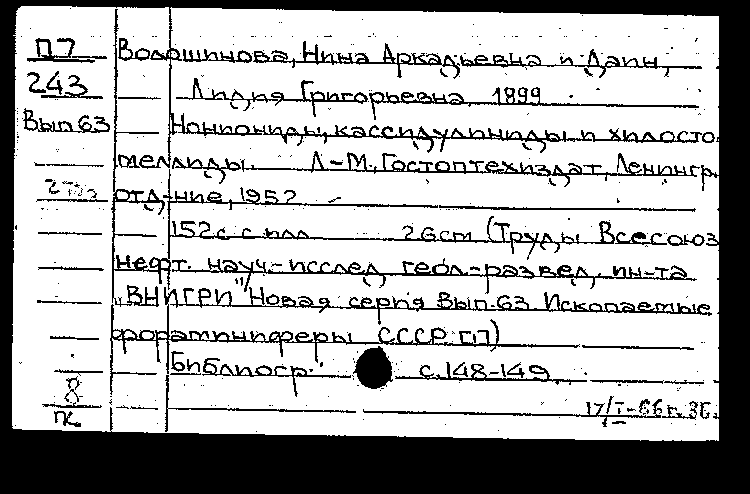 П7
243
Вып 63
Волошинова, Нина Аркадьевна и Даин,
Лидия Григорьевна, 1899
Нониониды, кассидулиниды и хилосто-
меллиды. Л-М., Гостоптехиздат, Ленингр.
отд-ние, 1952
152с с илл 26cm (Труды Всесоюз
нефт. науч-исслед геол-развед. ин-та
"ВНИГРИ" Новая серия Вып. 63 Ископаемые
фораминиферы СССР. П)
Библиогр.: с. 148-149
8
ПК
17/I-66 г. ЗБ.